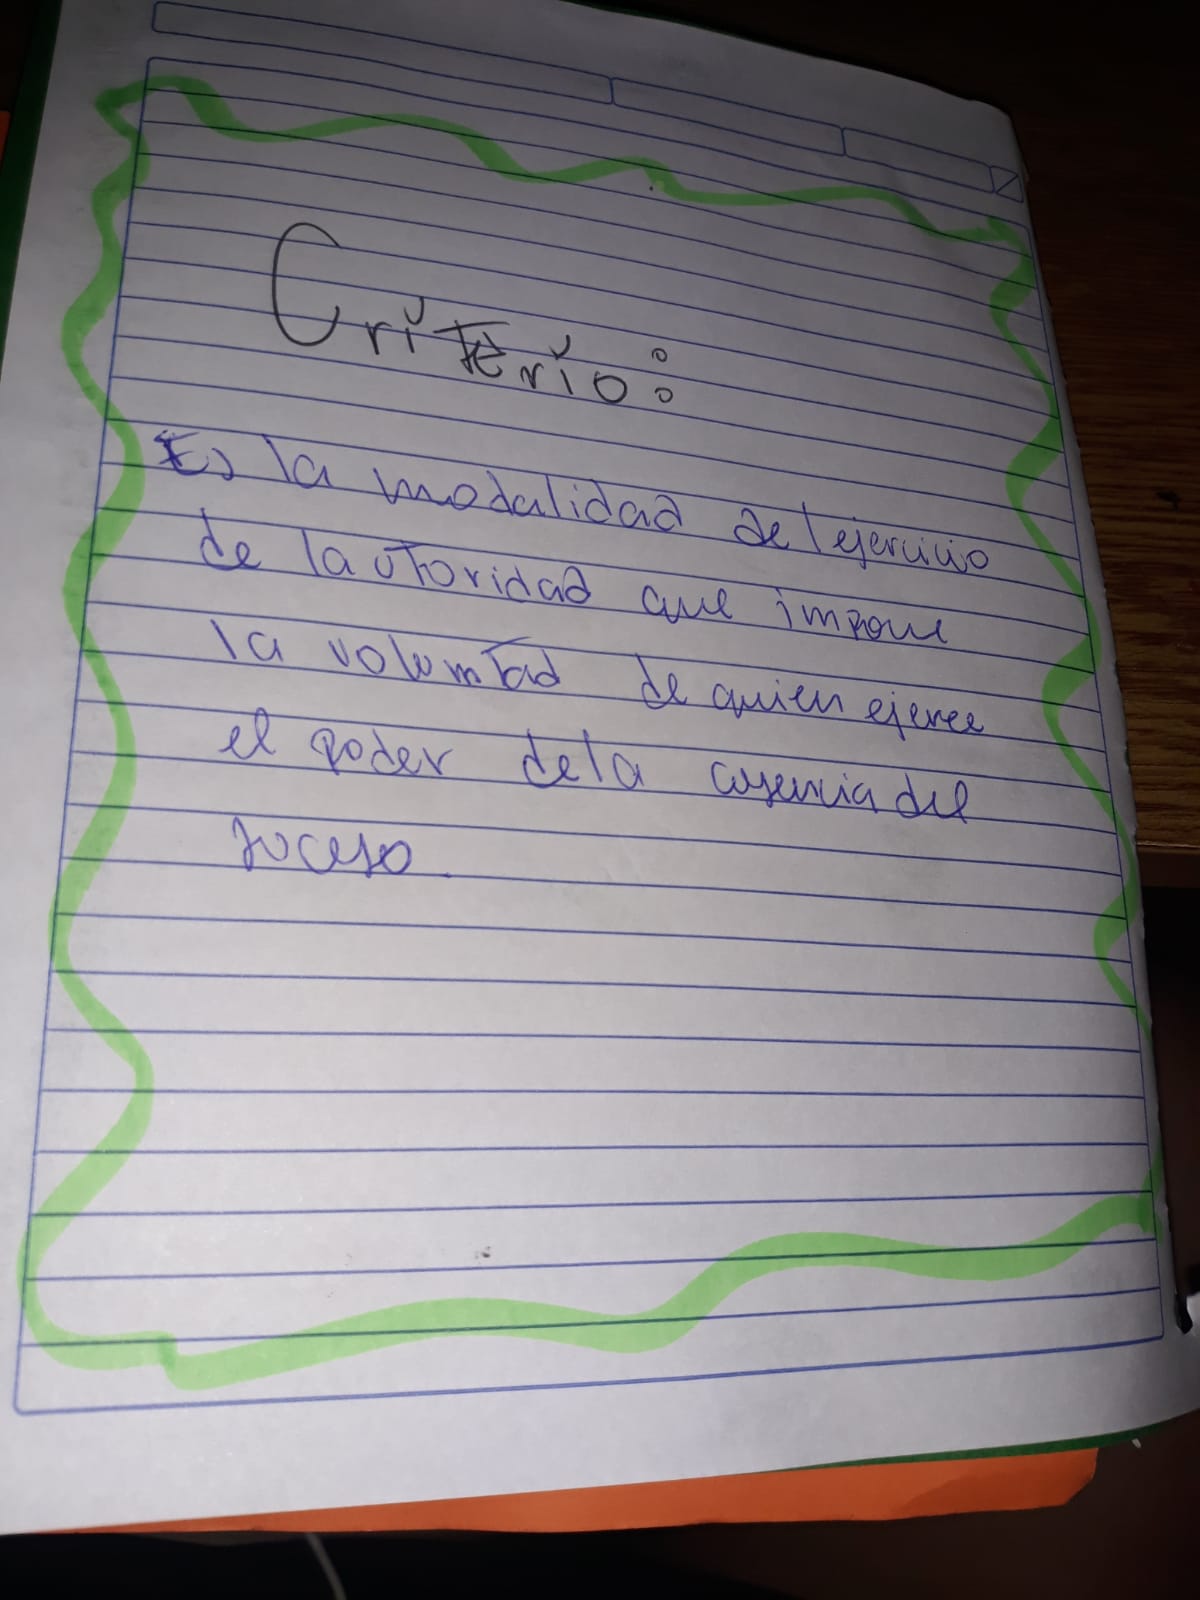 Criterio:
Es la modalidad del ejercicio
de la utoridad que impone
la voluntad de quien ejerce
el poder de la ausencia del
suceso.